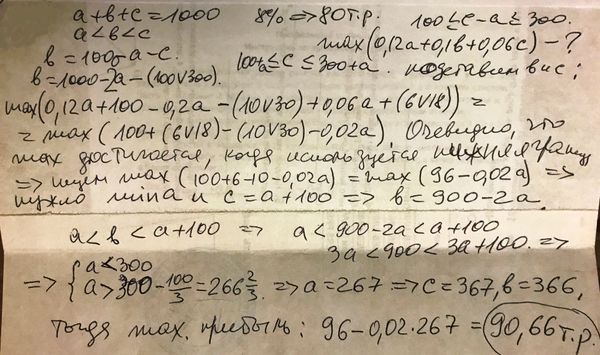 a+b+c=1000   8% => 80 т.р.   100≤c-a≤300.
a<b<c   max(0,12a+0,1b+0,06c) - ?
b=1000-a-c.   100+a≤c≤300+a. подставим в с:
b=1000-2a-(100∨300).
max(0,12a+100-0,2a-(10∨30)+0,06a+(6∨18)) =
= max(100+(6∨18)-(10∨30)-0,02a). Очевидно, что
max достигается, когда используется нижняя граница
=> ищем max(100+6-10-0,02a) = max(96-0,02a) =>
нужно min a и c=a+100 => b=900-2a.
a<b<a+100 => a<900-2a<a+100
3a<900<3a+100. =>
=> { a<300
a>300-100/3=266 2/3. => a=267 => c=367, b=366,
тогда max. прибыль: 96-0,02·267 = 90,66 т.р.